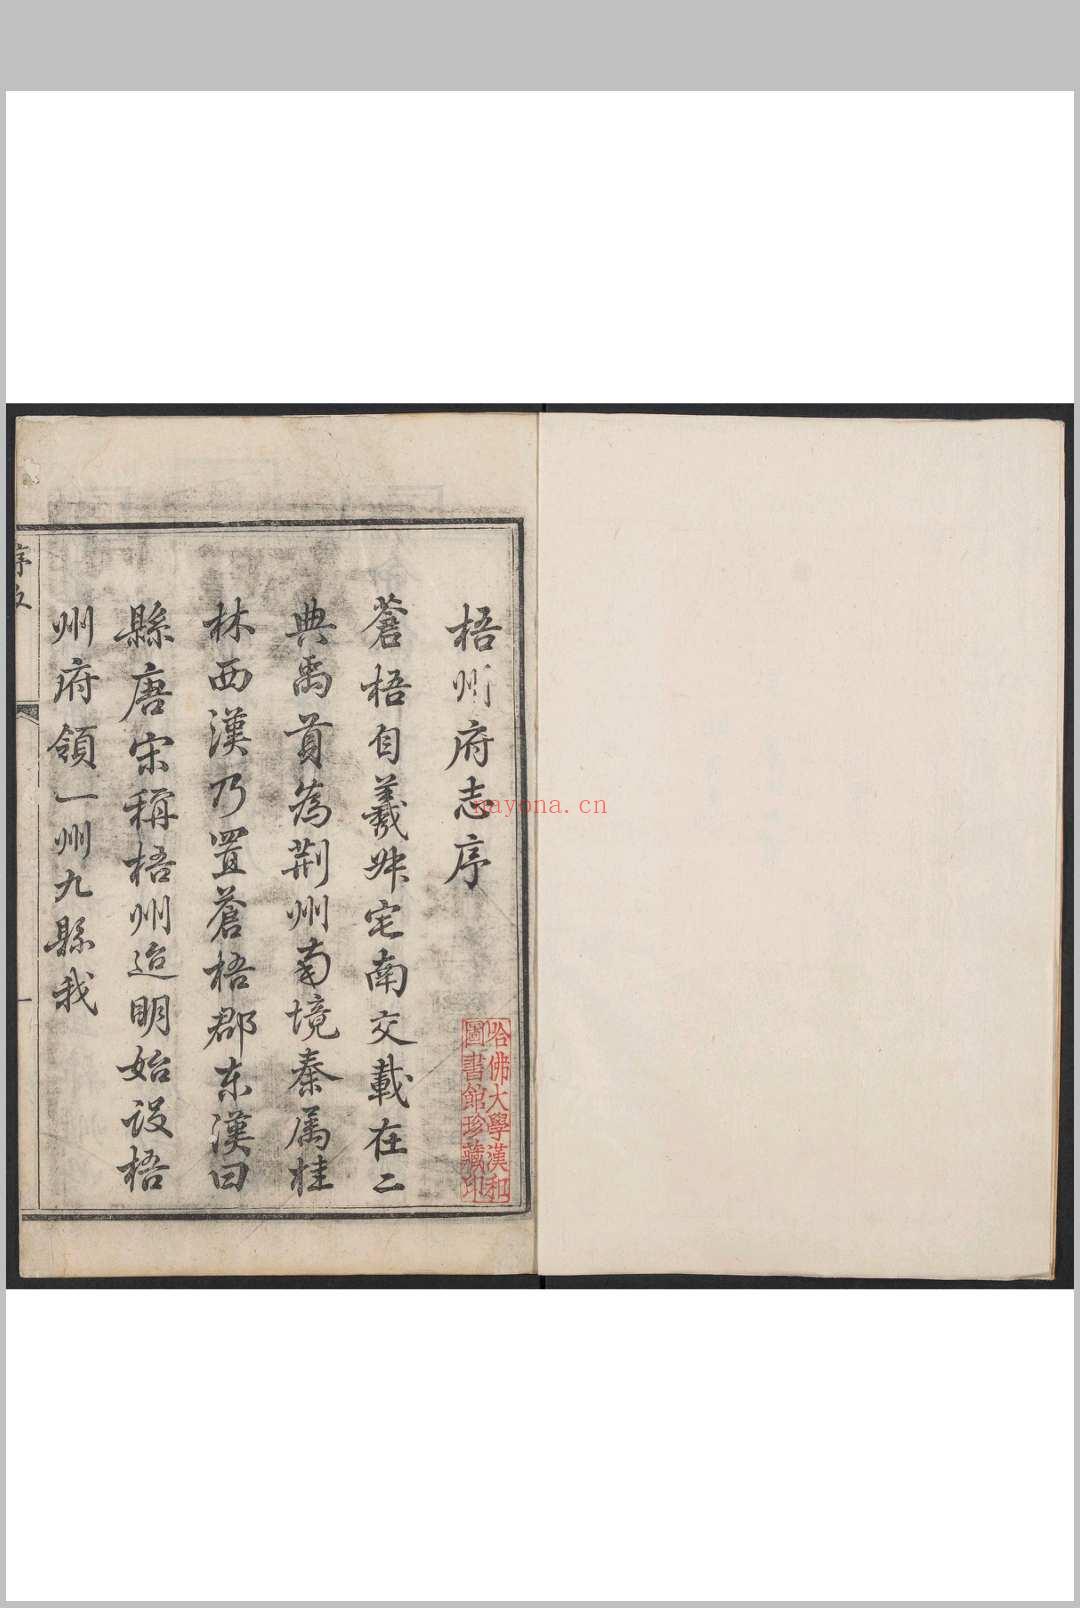 梧州府志序
蒼梧自羲叔宅南交載在二
典禹貢為荆州南境秦属桂
林西漢乃置蒼梧郡东漢曰
縣唐宋稱梧州迨明始设梧
州府領一州九縣我
序
一
哈佛大學漢和
圖書館珍藏印
nayona.cn